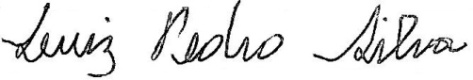 Luiz Pedro Silva